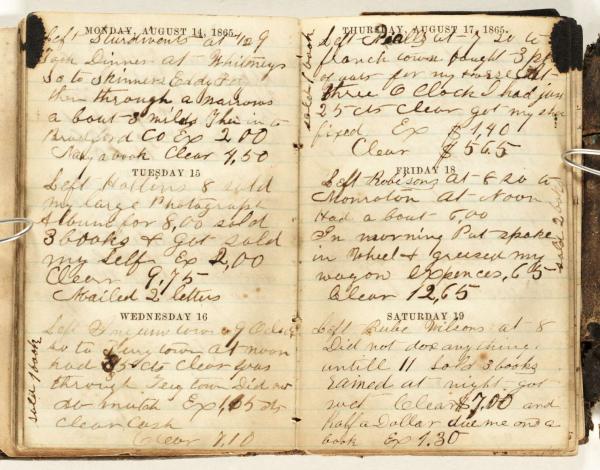 MONDAY, AUGUST 14, 1865.
Left Sturdivents at 1/2 9
Dinner at Whitneys
So to Skinners Eddy
then through a narrows
a bout 3 miles Then in to
Bradford Co Ex 2,00
a book Clear 4,50
TUESDAY 15
Left Hollins 8 sold
my large Photograph
Album for 8,00 sold
3 books & got sold
my Self Ex 2,00
Clear 9,75
Mailed 2 letters
WEDNESDAY 16
sold 1 book
Left town 9 Oclock
so to town at noon
had 35 cts Clear was
through town Did not
do mutch Ex, 65 cts
Clear Cash
Clear 7.10
THURSDAY, AUGUST 17, 1865.
sold 1 book
Left at 7 20 to
french town bought 3 p
of oats for my horse At
three O Clock I had just
25 cts Clear got my shoe
fixed Ex $1,40
Clear $565
FRIDAY 18
Left Robisons at 8 20 to
Monroton at Noon
Had a bout 6,00
In morning Put spoke
in Wheel & greased my
wagon Expences, 65
Clear 12,65
sold 2
SATURDAY 19
Left Wilsons at 8
Did not do anything
untill 11 Sold 3 books
rained at night got
wet Clear $7,00 and
half a Dollar due me on a
book Ex 1.30